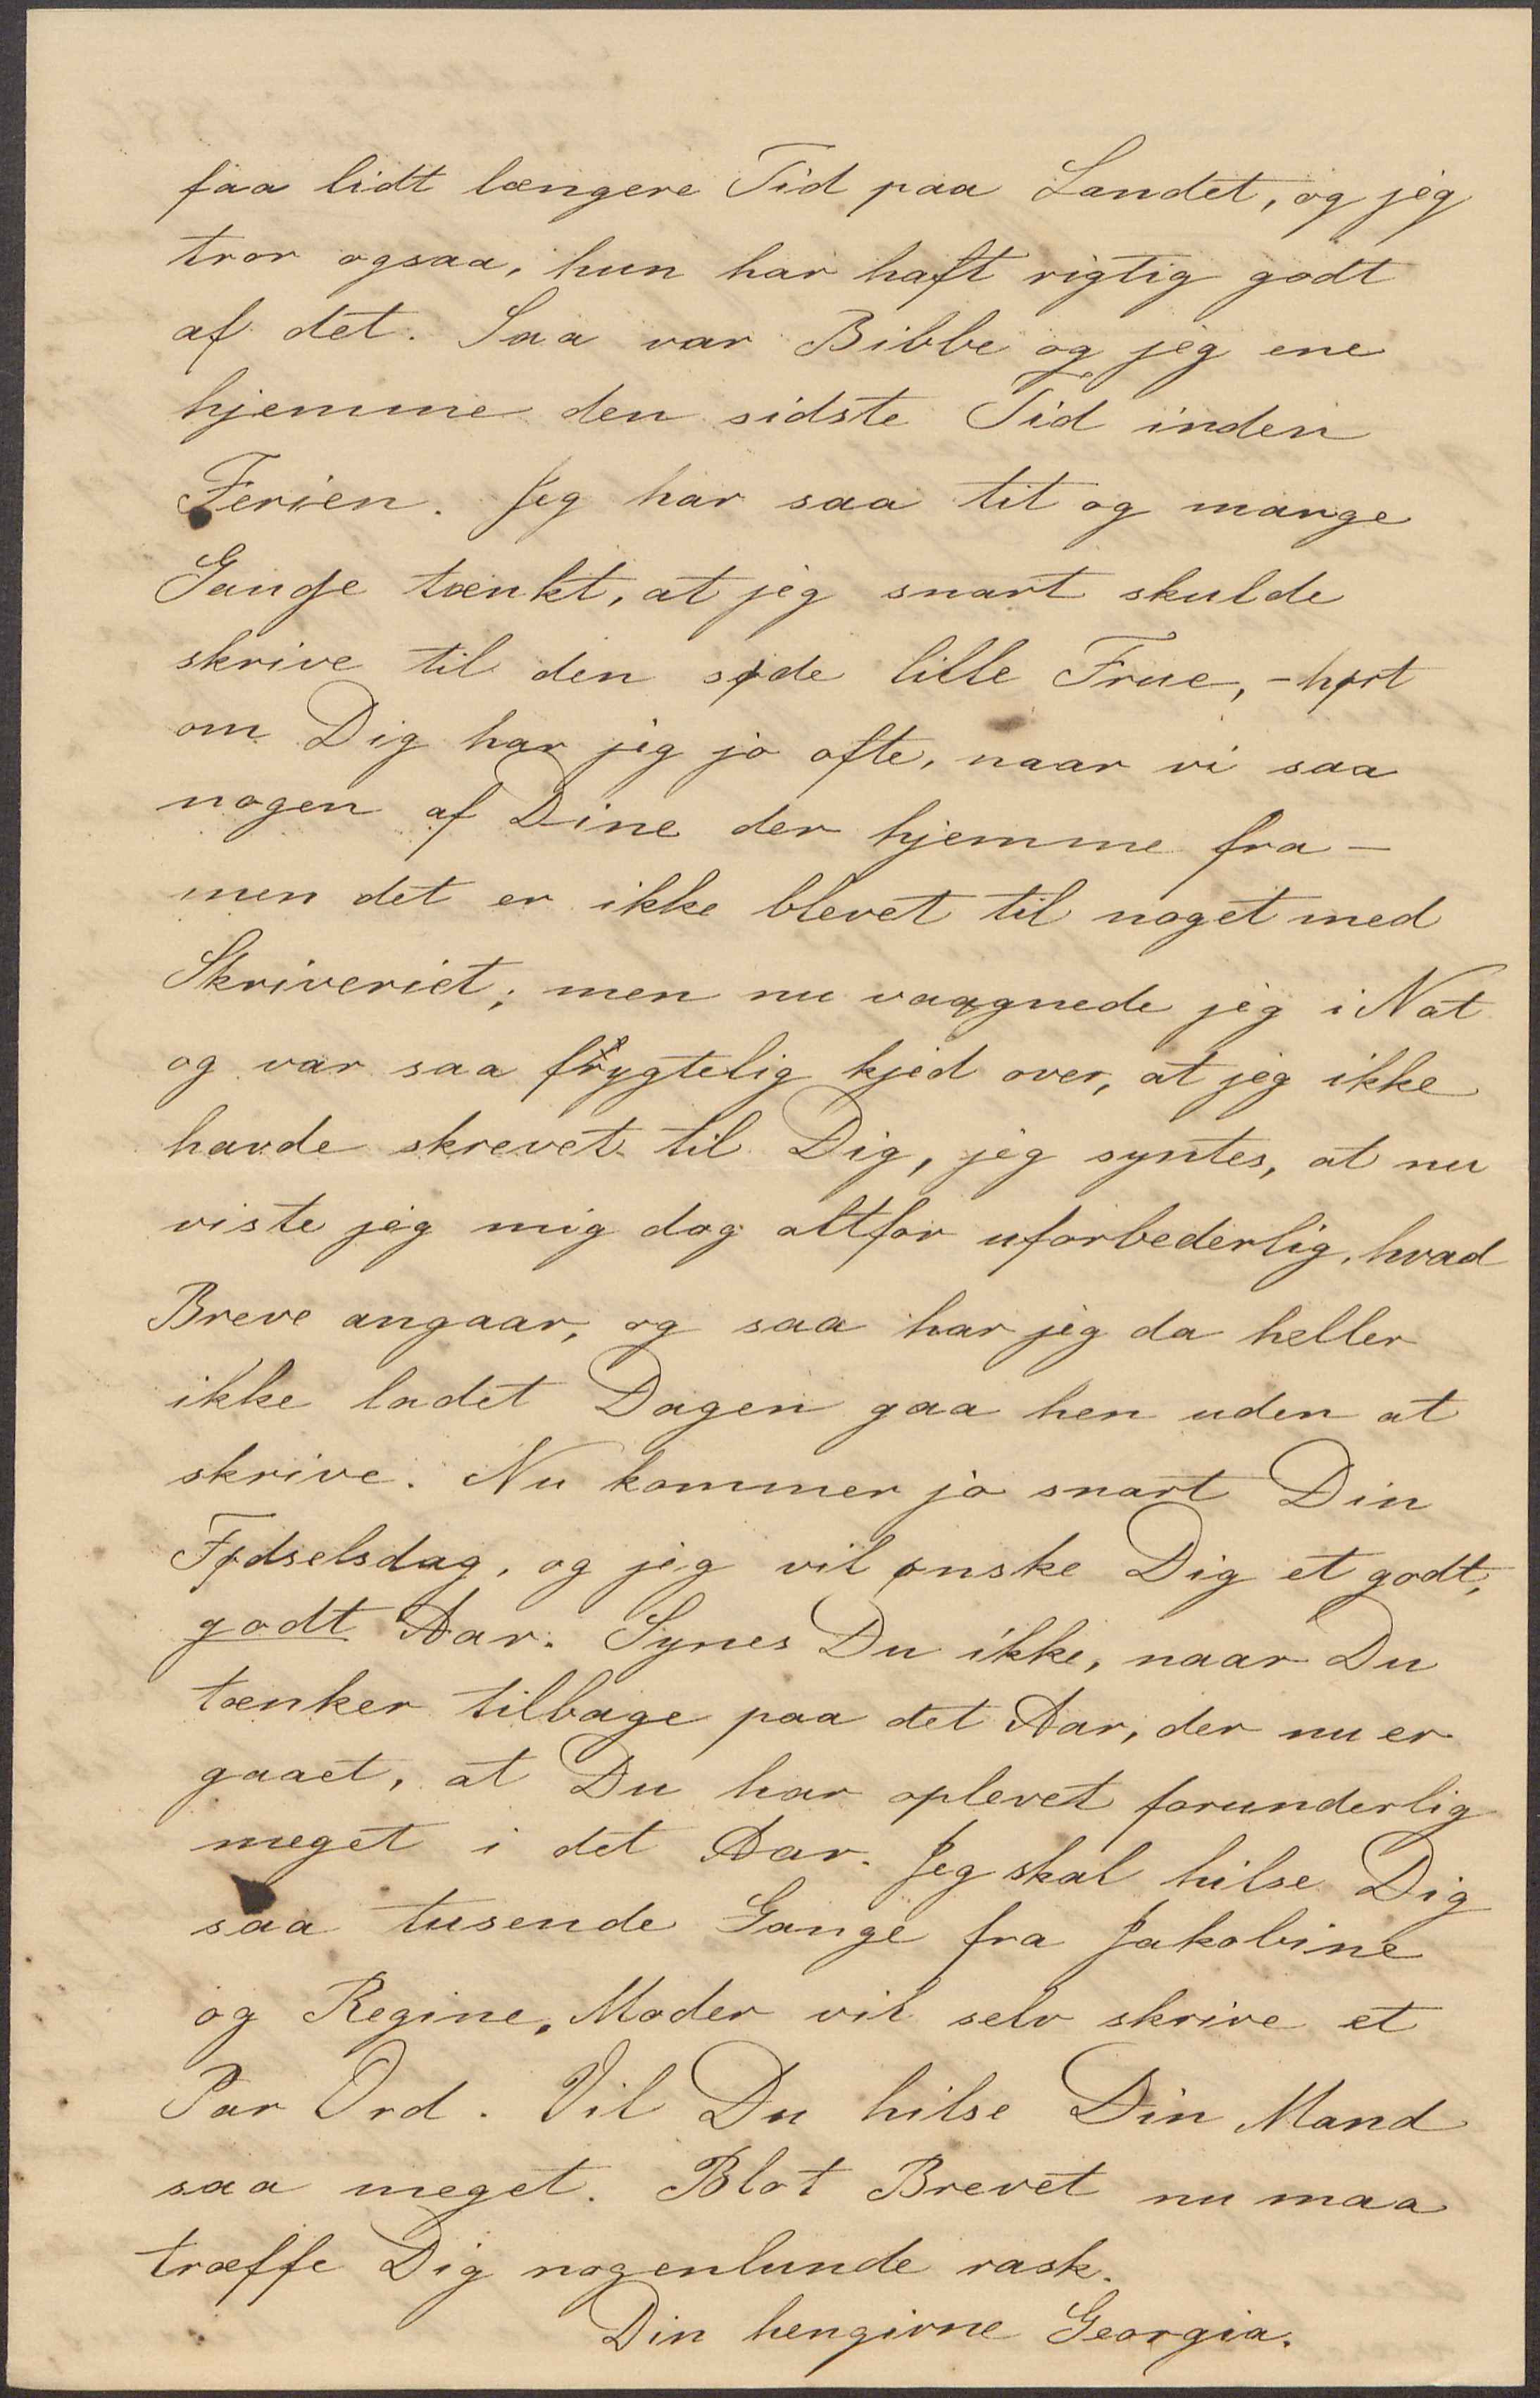 faa lidt længere Tid paa Landet, og jeg
tror ogsaa, hun har haft rigtig godt
af det. Saa var Bibbe og jeg ene
hjemme den sidste Tid inden
Ferien. Jeg har saa tit og mange
Gange tænkt, at jeg snart skulde
skrive til den søde lille Frue, - hørt
om Dig har jeg jo ofte, naar vi saa
nogen af Dine der hjemme fra -
men det er ikke blevet til noget med
Skriveriet; men nu vaagnede jeg i Nat
og var saa frygtelig kjed over, at jeg ikke
havde skrevet til Dig, jeg syntes, at nu
viste jeg mig dog altfor uforbederlig, hvad
Breve angaar, og saa har jeg da heller
ikke ladet Dagen gaa hen uden at
skrive. Nu kommer jo snart Din
Fødselsdag, og jeg vil ønske Dig et godt,
godt Aar. Synes Du ikke, naar Du
tænker tilbage paa det Aar, der nu er
gaaet, at Du har oplevet forunderlig
meget i det Aar. Jeg skal hilse Dig
saa tusende Gange fra Jakobine
og Regine, Moder vil selv skrive et
Par Ord. Vil Du hilse Din Mand
saa meget. Blot Brevet nu maa
træffe Dig nogenlunde rask.
Din hengivne Georgia.